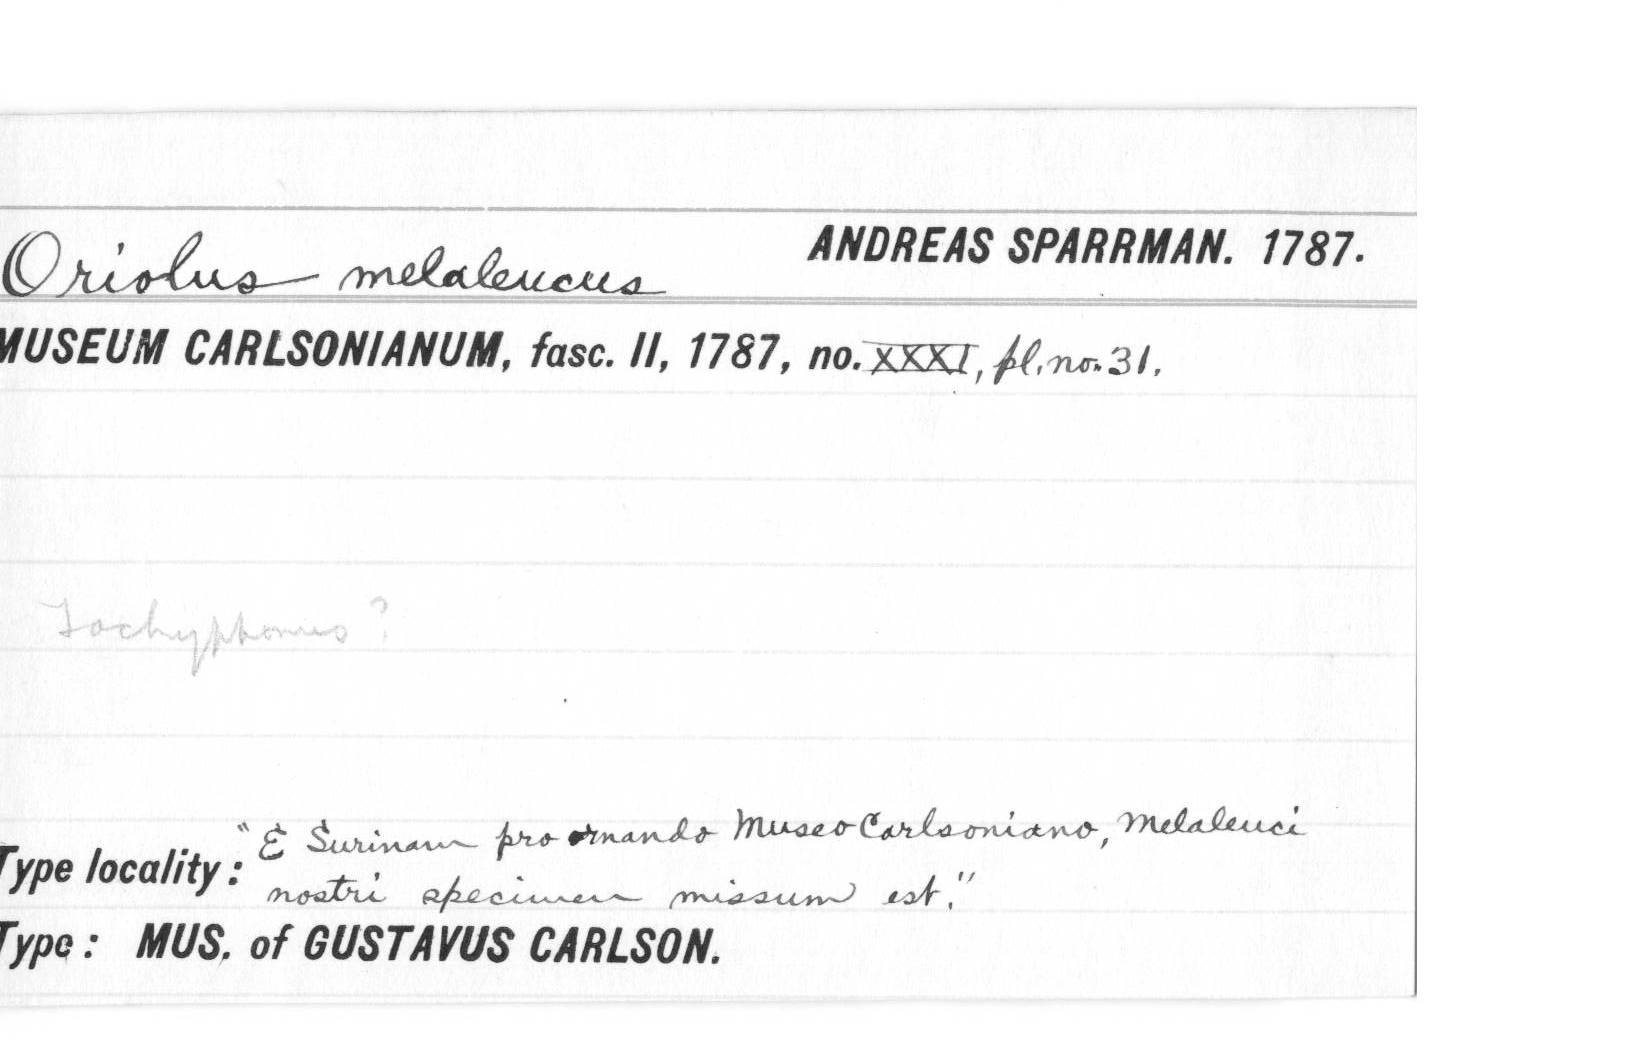 Oriolus melaleucus
ANDREAS SPARRMAN. 1787.
MUSEUM CARLSONIANUM, fasc. II, 1787, no. XXXI, pl. no. 31.
Tachyphonus?
Type locality: "E Surinam pro ornando Museo Carlsoniano, Melaleuci
nostri specimen missum est."
Type: MUS. of GUSTAVUS CARLSON.